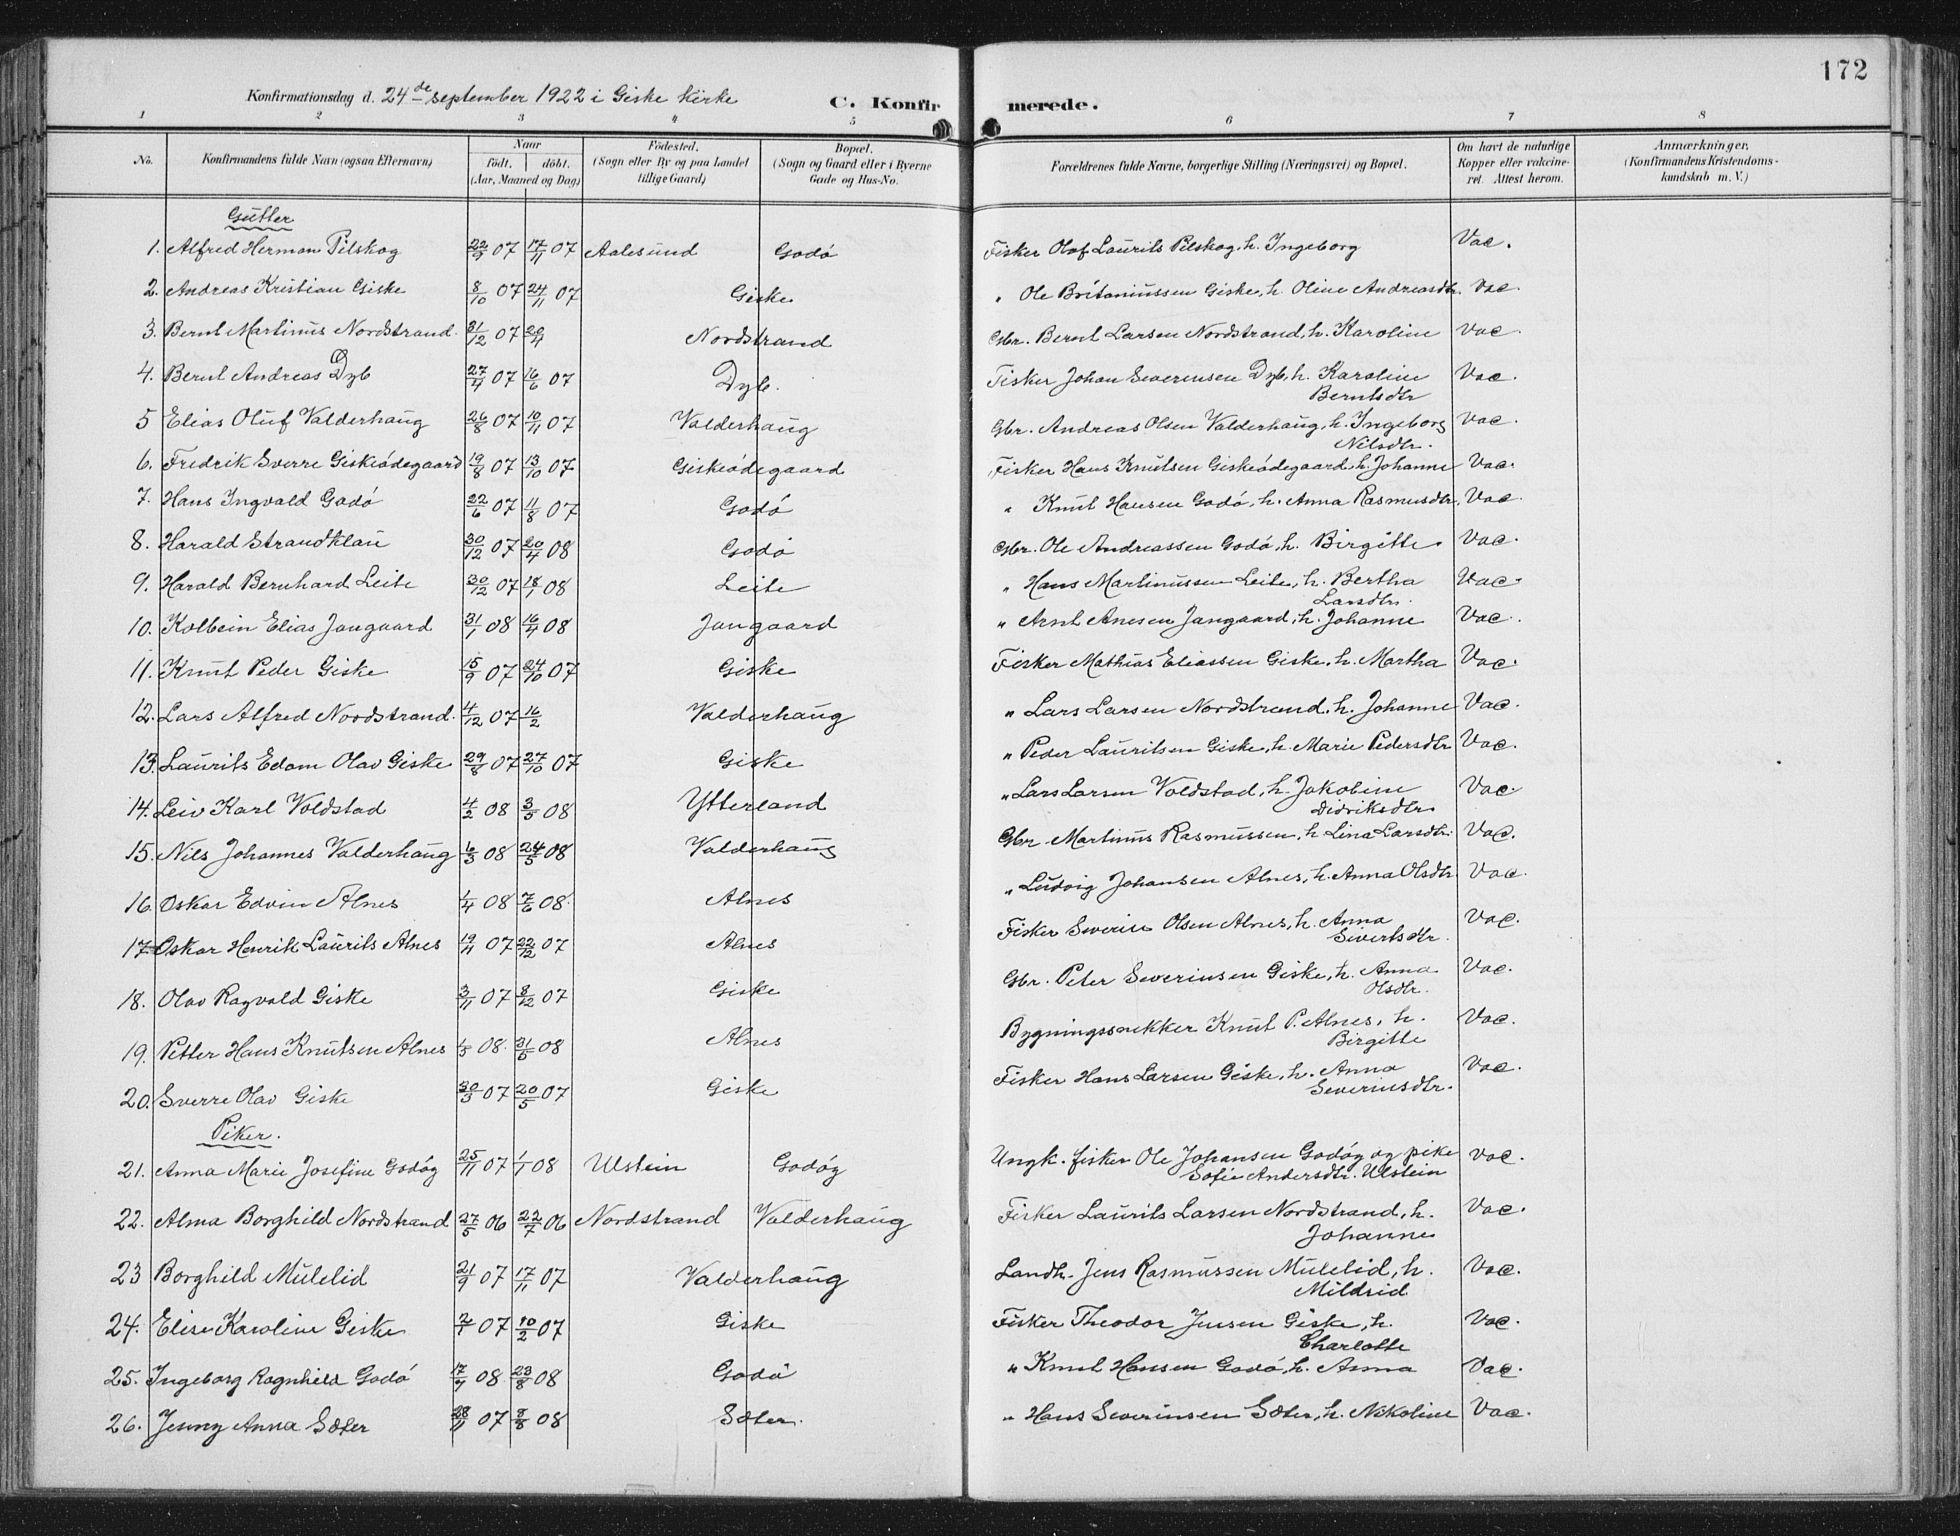 172
Konfirmationsdag d. 24de september 1922 i Giske kirke C. Konfirmerede.
1 2 3 4 5 6 7 8
No. Konfirmandens fulde Navn (ogsaa Efternavn) Naar født. døbt. (Aar, Maaned og Dag) Fødested. (Sogn eller By og paa Landet tillige Gaard) Bopæl. (Sogn og Gaard eller i Byerne Gade og Hus-No. Forældrenes fulde Navne, borgerlige Stilling (Næringsvei) og Bopæl. Om havt de naturlige Kopper eller vakcineret. Attest herom. Anmærkninger. (Konfirmandens Kristendomskundskab m. V.)
Gutter
1. Alfred Herman Pilskog 22/9 07 17/11 07 Aalesund Godø Fisker Olaf Laurits Pilskog, h. Ingeborg Vac.
2. Andreas Kristian Giske 8/10 07 24/11 07 Giske " Ole Britaniussen Giske, h. Oline Andreasdtr. Vac.
3. Bernt Martinus Nordstrand. 31/12 07 20/4 Nordstrand Gbr. Bernt Larsen Nordstrand, h. Karoline Vac.
4. Bernt Andreas Dyb 27/4 07 16/6 07 Dyb. Fisker Johan Severinsen Dyb, h. Karoline Vac.
Berntsdtr
5 Elias Oluf Valderhaug 26/8 07 10/11 07 Valderhaug Gbr. Andreas Olsen Valderhaug, h. Ingeborg Vac.
Nilsdtr.
6. Fredrik Sverre Giskeødegaard 19/8 07 13/10 07 Giskeødegaard Fisker Hans Knutsen Giskeødegaard, h. Johanne Vac.
7. Hans Ingvald Godø 22/6 07 11/8 07 Godø " Knut Hansen Godø, h. Anna Rasmusdtr. Vac.
8. Harald Strandklau 30/12 07 20/4 08 Godø Gbr. Ole Andreassen Godø, h. Birgitte. Vac.
9. Harald Bernhard Leite 30/12 07 18/1 08 Leite " Hans Martinussen Leite, h. Bertha Vac.
Larsdtr.
10. Kolbein Elias Jangaard 31/1 08 16/4 08 Jangaard " Arnt Anesen Jangaard, h. Johanne Vac.
11. Knut Peder Giske 15/9 07 24/10 07 Giske Fisker Mathias Eliassen Giske, h. Martha Vac.
12. Lars Alfred Nordstrand. 4/12 07 16/2 Valderhaug " Lars Larsen Nordstrand, h. Johanne Vac.
13. Laurits Edam Olav Giske 29/8 07 27/10 07 Giske " Peder Lauritsen Giske, h. Marie Pedersdtr Vac.
14. Leiv Karl Voldstad 4/2 08 3/5 08 Ytterland " Lars Larsen Voldstad, h. Jakobine Vac.
Didriksdtr.
15. Nils Johannes Valderhaug 6/3 08 24/5 08 Valderhaug Gbr. Martinus Rasmussen, h. Lina Larsdtr. Vac.
16. Oskar Edvin Alnes 1/4 08 7/6 08. Alnes " Ludvig Johansen Alnes, h. Anna Olsdtr. Vac.
17. Oskar Henrik Laurits Alnes 19/4 07 22/12 07 Alnes Fisker Severin Olsen Alnes, h. Anna Vac.
Sivertsdtr.
18. Olav Ragvald Giske 3/11 07 8/12 07 Giske Gbr. Peter Severinsen Giske, h. Anna Vac.
Olsdtr.
19. Petter Hans Knutsen Alnes 1/5 08. 31/5 08 Alnes Bygningssnekker Knut P. Alnes, h. Vac.
Birgitte
20. Sverre Olav Giske 30/3 07 20/5 07 Giske Fisker Hans Larsen Giske, h. Anna Vac.
Severinsdtr.
Piker.
21. Anna Marie Josefine Godøy 25/11 07 1/1 08 Ulstein Godøy Ungk. fisker Ole Johansen Godøy og pike Vac.
Sofie Andersdtr. Ulstein
22. Alma Borghild Nordstrand 27/5 06 22/7 06 Nordstrand Valderhaug Fisker Laurits Larsen Nordstrand, h. Vac.
Johanne
23 Borghild Mulelid 21/9 07 17/11 07 Valderhaug Landh. Jens Rasmussen Mulelid, h. Vac.
Mildrid
24. Elise Karoline Giske 2/1 07 10/2 07 Giske Fisker Theodor Jensen Giske, h. Vac.
Charlotte
25. Ingeborg Ragnhild Godø 17/7 08 23/8 08 Godø " Knut Hansen Godø, h. Anna Vac.
26. Jenny Anna Sæter 28/11 07 9/8 08 Sæter. " Hans Severinsen Sæter, h. Nikoline Vac.